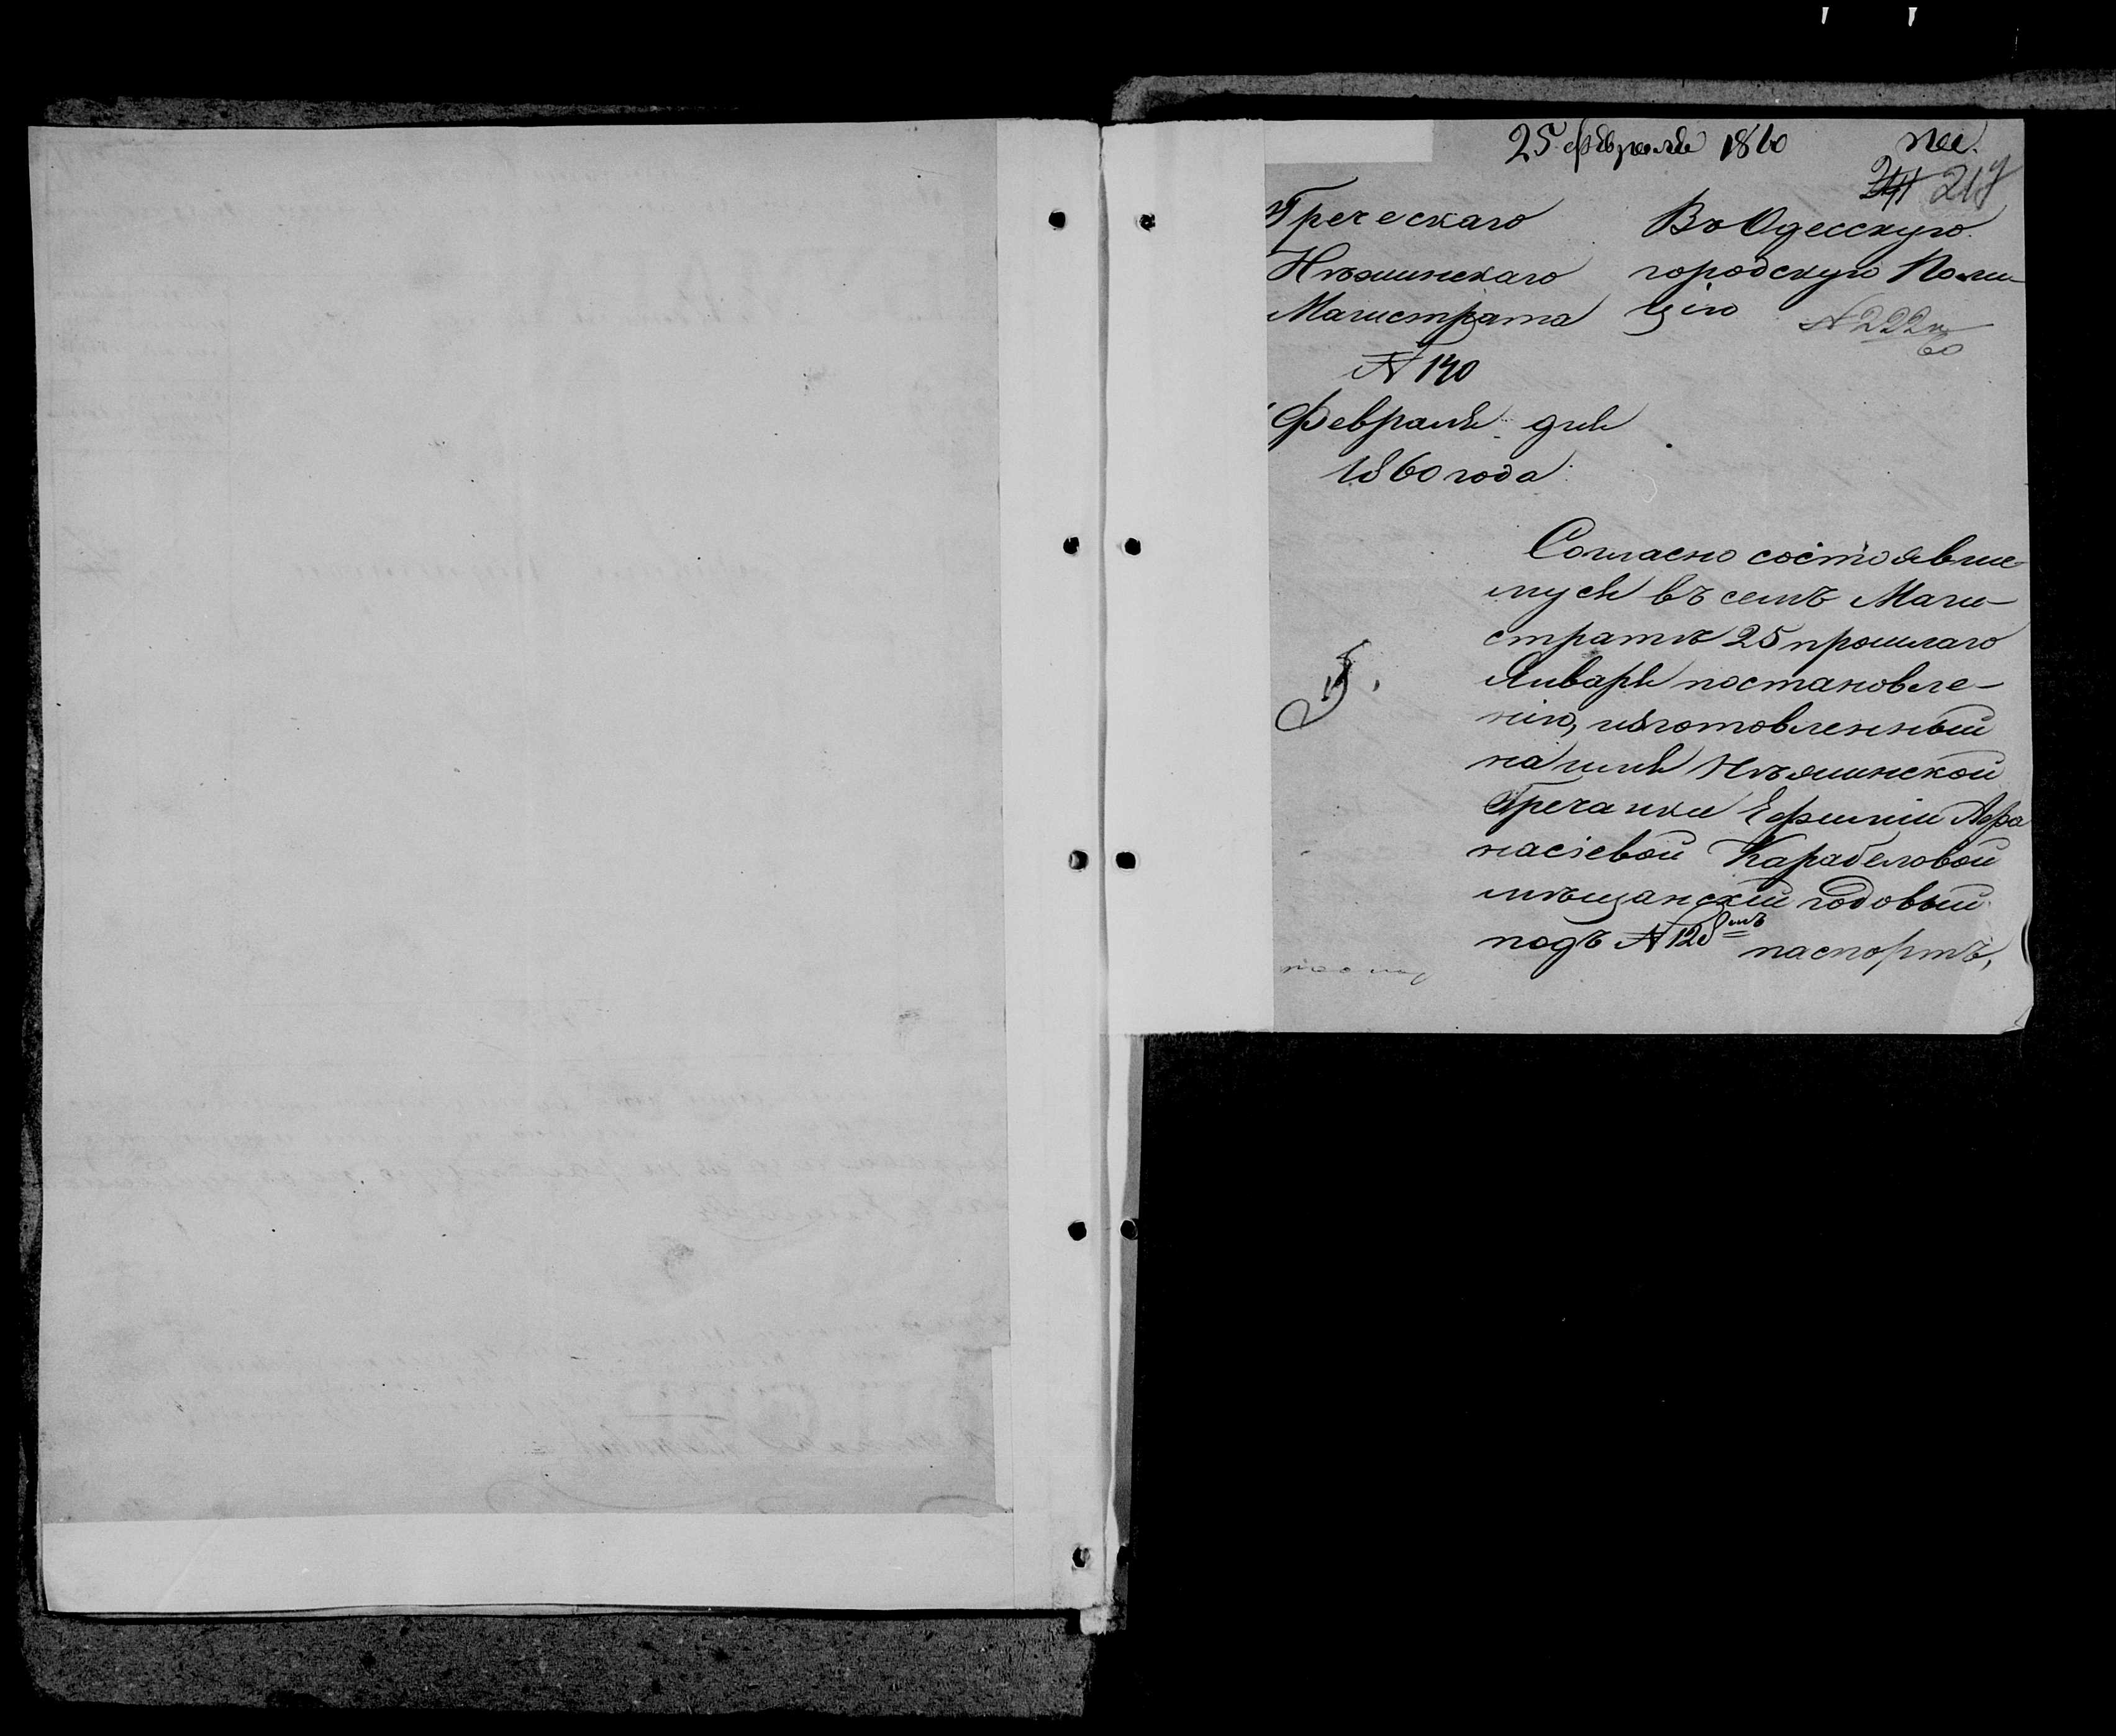 25 февраля 1860
217
Греческаго
Нѣжинскаго
Магистрата
№ 140
Февраля дня
1860 года
Въ Одесскую
городскую Поли-
цію
№ 222
60
Согласно состоявше-
муся въ семъ Маги-
стратѣ 25 прошлаго
Января постановле-
нію, изготовленный
на имя Нѣжинской
Гречанки Ефиміи Афа
насіевой Карабеловой
мѣщанскій годовый
подъ № 128мъ паспортъ,